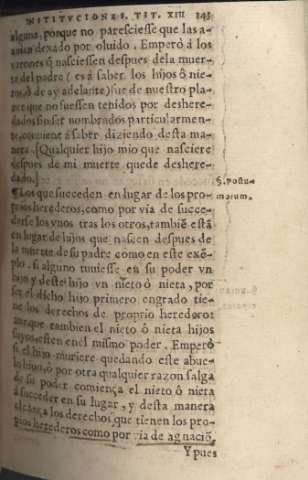 INSTITVCIONES, TIT. XIII 145
alguna, porque no paresciesse que las a-
uian dexado por oluido. Emperò á los
varones q̃ nasciessen despues dela muer-
te del padre (es á saber los hijos ò nie-
tos, ò de ay adelante) fue de nuestro pla-
zer que no fuessen tenidos por deshere-
dados sin ser nombrados particularmen-
te, conuiene á saber diziendo desta ma-
nera. [Qualquier hijo mio que nasciere
despues de mi muerte quede deshere-
dado.]
§. Postu-
morum.
¶ Los que succeden en lugar de los pro-
prios herederos, como por via de succe-
derse los vnos tras los otros, tambiẽ estã
en lugar de hijos que nascen despues de
la muerte de su padre como en este exẽ-
plo. si alguno tuuiesse en su poder vn
hijo y deste hijo vn nieto ò nieta, por
ser el dicho hijo primero en grado tie-
ne los derechos de proprio heredero:
aunque tambien el nieto ò nieta hijos
suyos, esten en el mismo poder. Emperò
si el hijo muriere quedando este abue-
lo biuo, ò por otra qualquier razon salga
de su poder comiença el nieto ò nieta
á succeder en su lugar, y desta manera
alcança los derechos que tienen los pro-
prios herederos como por via de agnaciõ,
Y pues